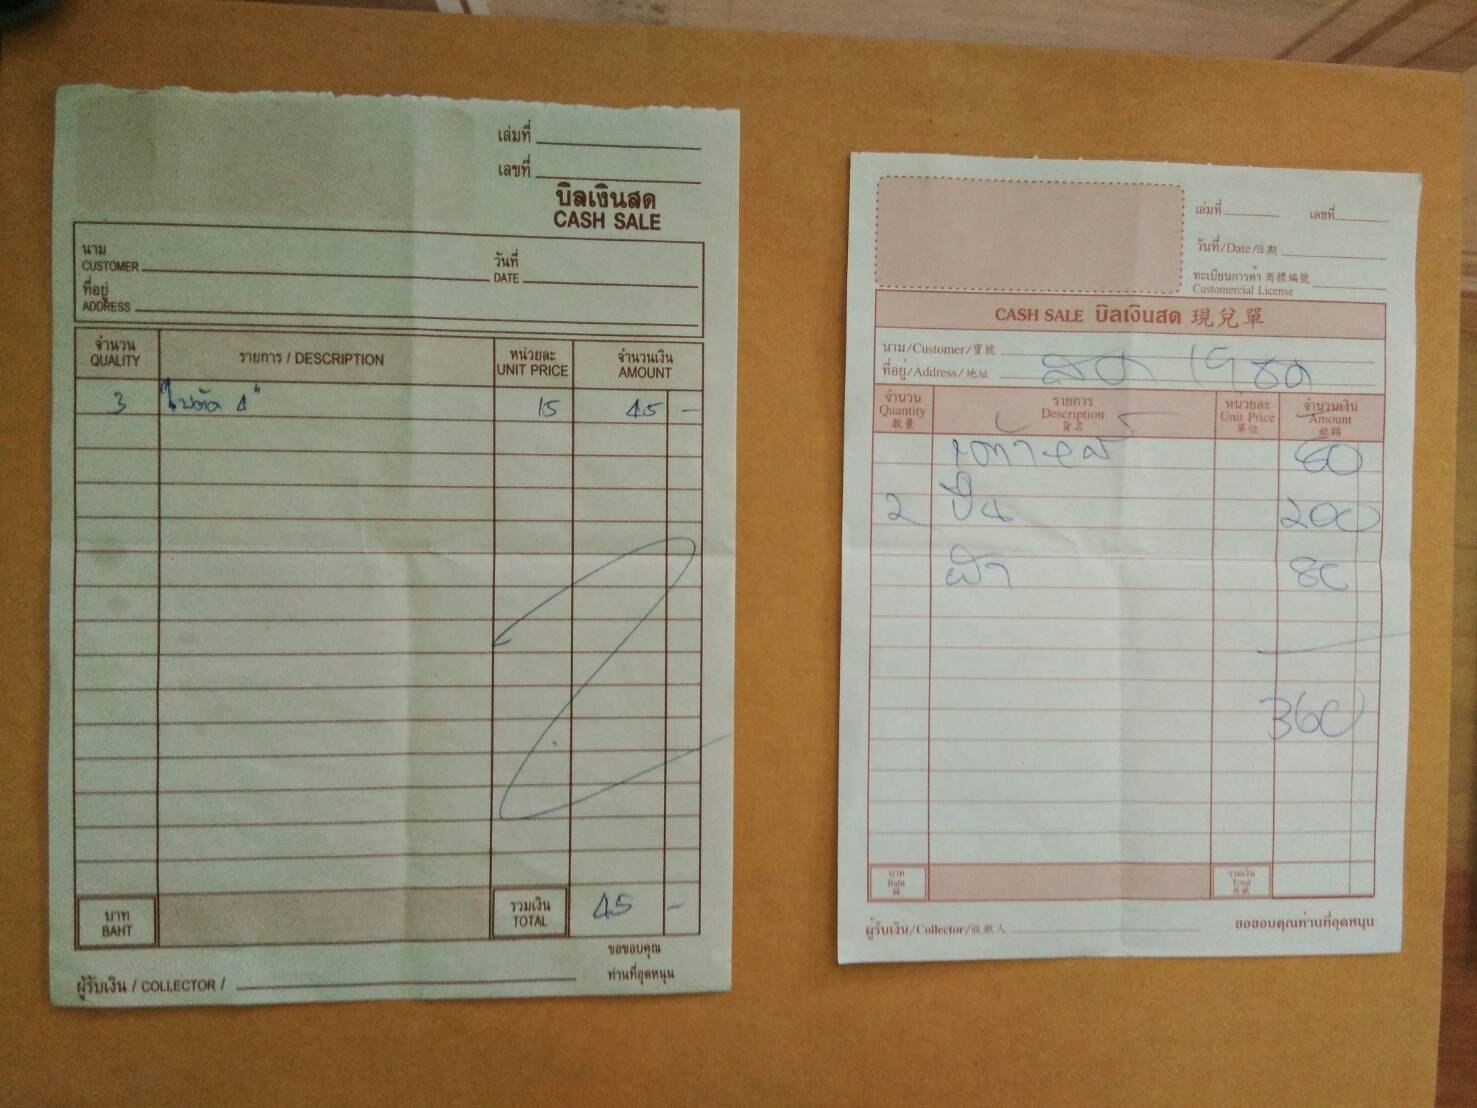 เล่มที่
เลขที่
บิลเงินสด
CASH SALE
นาม
CUSTOMER
วันที่
DATE
ที่อยู่
ADDRESS
จำนวน
QUALITY
รายการ / DESCRIPTION
หน่วยละ
UNIT PRICE
จำนวนเงิน
AMOUNT
3 ใบตัด 4" 15 45 -
บาท
BAHT
รวมเงิน
TOTAL
45 -
ขอขอบคุณ
ท่านที่อุดหนุน
ผู้รับเงิน / COLLECTOR /
เล่มที่ เลขที่
วันที่/Date/日期
ทะเบียนการค้า 商標編號
Customercial License
CASH SALE บิลเงินสด 現兌單
นาม/Customer/寶號
ที่อยู่/Address/地址
สด
จำนวน
Quantity
數量
รายการ
Description
貨名
หน่วยละ
Unit Price
單位
จำนวนเงิน
Amount
銀額
80
2 200
ผ้า 80
360
บาท
Baht
รวมเงิน
Total
ผู้รับเงิน/Collector/收銀人
ขอขอบคุณท่านที่อุดหนุน